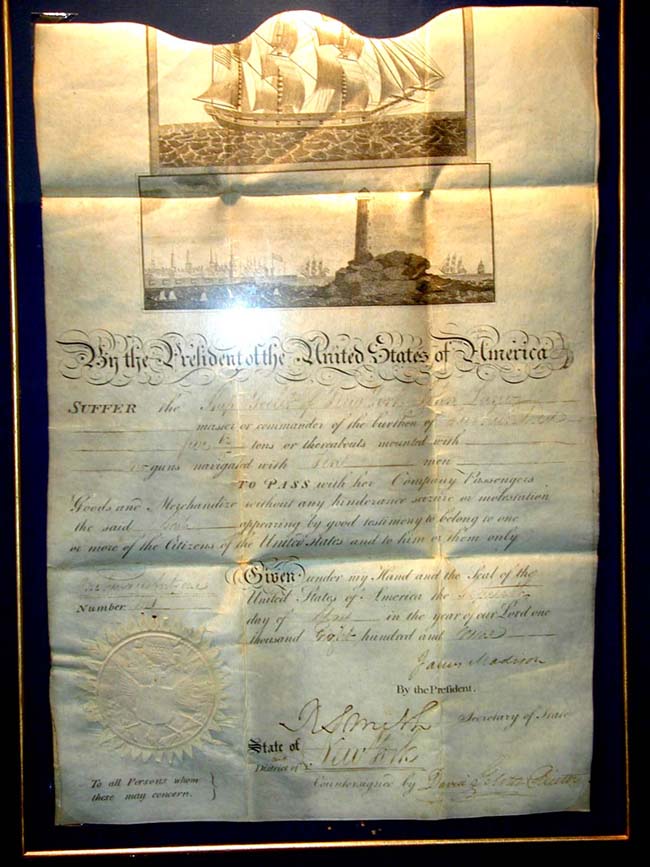 By the President of the United States of America
SUFFER the Ship of New York
master or commander of the burthen of
five tons or thereabouts mounted with
guns navigated with men
TO PASS with her Company Passengers
Goods and Merchandize without any hinderance seizure or molestation
the said appearing by good testimony to belong to one
or more of the Citizens of the United States and to him or them only
Given under my Hand and the Seal of the
United States of America the
day of in the year of our Lord one
thousand Eight hundred and
Number
James Madison
By the President.
R Smith Secretary of State
State of New York
District of
Countersigned by David Gelston
To all Persons whom
these may concern.